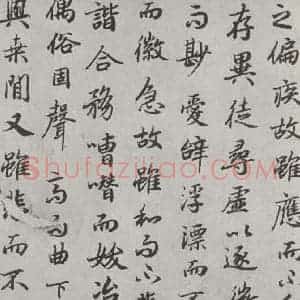 之偏疾故雖應而
存異徒尋虛以逐微
而尠愛辭浮漂而不
而徽急故雖和而不悲
諧合務嘈囋而妖冶
偶俗固聲高而曲下
與桑間又雖悲而不
Shufaziliao.com